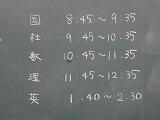 国 8:45～9:35
社 9:45～10:35
数 10:45～11:35
理 11:45～12:35
英 1:40～2:30